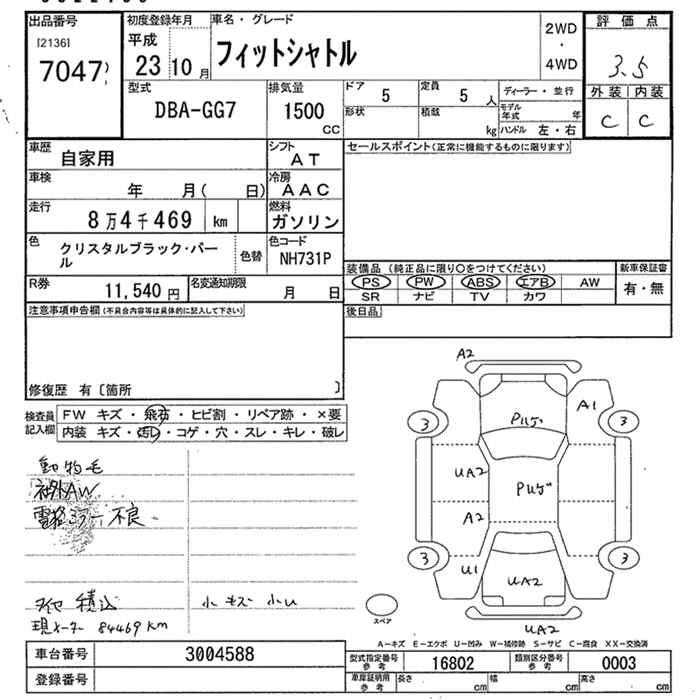 出品番号
[2136]
7047
初度登録年月
平成
23 10 月
車名・グレード
フィットシャトル
2WD
・
4WD
評価点
3.5
外装 内装
C C
型式
DBA-GG7
排気量
1500
CC
ドア
5
定員
5 人
形状
積載
kg
ディーラー・並行
モデル年式 年
ハンドル 左・右
車歴
自家用
シフト
AT
車検
年 月( 日)
冷房
AAC
走行
8万4千469 km
燃料
ガソリン
色
クリスタルブラック・パール
色替
色コード
NH731P
R券
11,540 円
名変通知期限
月 日
セールスポイント(正常に機能するものに限ります)
装備品 (純正品に限り○をつけてください)
PS PW ABS エアB AW
SR ナビ TV カワ
新車保証書
有・無
後日品
注意事項申告欄(不具合内容等は具体的に記入して下さい)
修復歴 有〔箇所 〕
検査員記入欄
FW キズ・飛石・ヒビ割・リペア跡・×要
内装 キズ・汚レ・コゲ・穴・スレ・キレ・破レ
動物毛
社外AW
電格ミラー不良
タイヤ積込
現メーター 84469km
小キズ 小U
A2
A1
3
3
UA2
A2
3
3
U1
UA2
UA2
スペア
A-キズ E-エクボ U-凹み W-補修跡 S-サビ C-腐食 XX-交換済
車台番号
3004588
登録番号
型式指定番号
参考
16802
類別区分番号
参考
0003
車庫証明用
参考
長さ cm
幅 cm
高さ cm